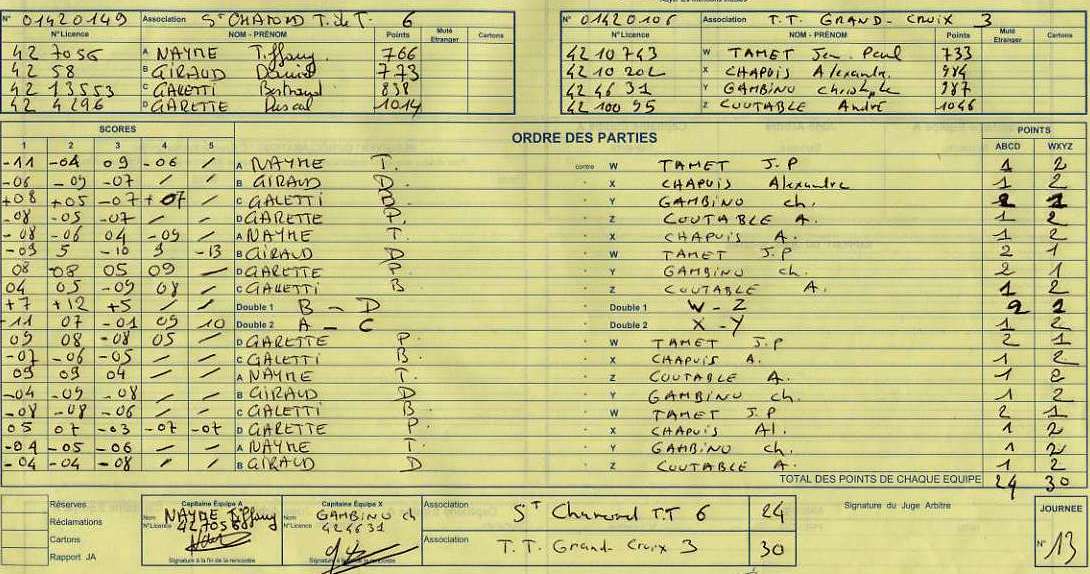 N° 01420149 Association St CHAMOND T. de T. 6
N° Licence NOM - PRÉNOM Points Muté Etranger Cartons
42 7056 A NAYME Tiffany 766
42 58 B GIRAUD Daniel 773
42 13553 C GALETTI Bertrand 838
42 4296 D GARETTE Pascal 1014
N° 01420106 Association T.T. GRAND-CROIX 3
N° Licence NOM - PRÉNOM Points Muté Etranger Cartons
42 10743 W TAMET Jean Paul 733
42 10202 X CHAPUIS Alexandre 984
42 4631 Y GAMBINO christophe 987
42 10095 Z COUTABLE André 1046
SCORES ORDRE DES PARTIES POINTS
1 2 3 4 5 ABCD WXYZ
-11 -04 09 -06 / A NAYME T. contre W TAMET J.P 1 2
-06 -09 -07 / / B GIRAUD D. X CHAPUIS Alexandre 1 2
+08 +05 -07 +07 / C GALETTI B. Y GAMBINO ch. 2 1
-08 -05 -07 / / D GARETTE P. Z COUTABLE A. 1 2
-08 -06 04 -09 / A NAYME T. X CHAPUIS A. 1 2
-09 5 -10 9 -13 B GIRAUD D W TAMET J.P 2 1
08 -08 05 09 / D GARETTE P. Y GAMBINO ch. 2 1
04 05 -09 08 / C GALETTI B. Z COUTABLE A. 1 2
+7 +12 +5 / / Double 1 B - D Double 1 W - Z 2 1
-11 07 -01 09 10 Double 2 A - C Double 2 X - Y 1 2
09 08 -08 05 / D GARETTE P. W TAMET J.P 2 1
-07 -06 -05 / / C GALETTI B. X CHAPUIS A. 1 2
09 09 04 / / A NAYME T. Z COUTABLE A. 1 2
-04 -09 -08 / / B GIRAUD D Y GAMBINO ch. 1 2
-08 -08 -06 / / C GALETTI B. W TAMET J.P 2 1
05 07 -03 -07 -07 D GARETTE P. X CHAPUIS Al. 1 2
-04 -05 -06 / / A NAYME T. Y GAMBINO ch. 1 2
-04 -04 -08 / / B GIRAUD D Z COUTABLE A. 1 2
TOTAL DES POINTS DE CHAQUE EQUIPE 24 30
Réserves
Réclamations
Cartons
Rapport JA
Capitaine Équipe A
Nom NAYME Tiffany
N°Licence
Signature à la fin de la rencontre
Capitaine Équipe X
Nom GAMBINO ch
N°Licence 424631
Signature à la fin de la rencontre
Association St Chamond T.T 6 24
Association T.T. Grand-Croix 3 30
Signature du Juge Arbitre
JOURNEE
N° 13